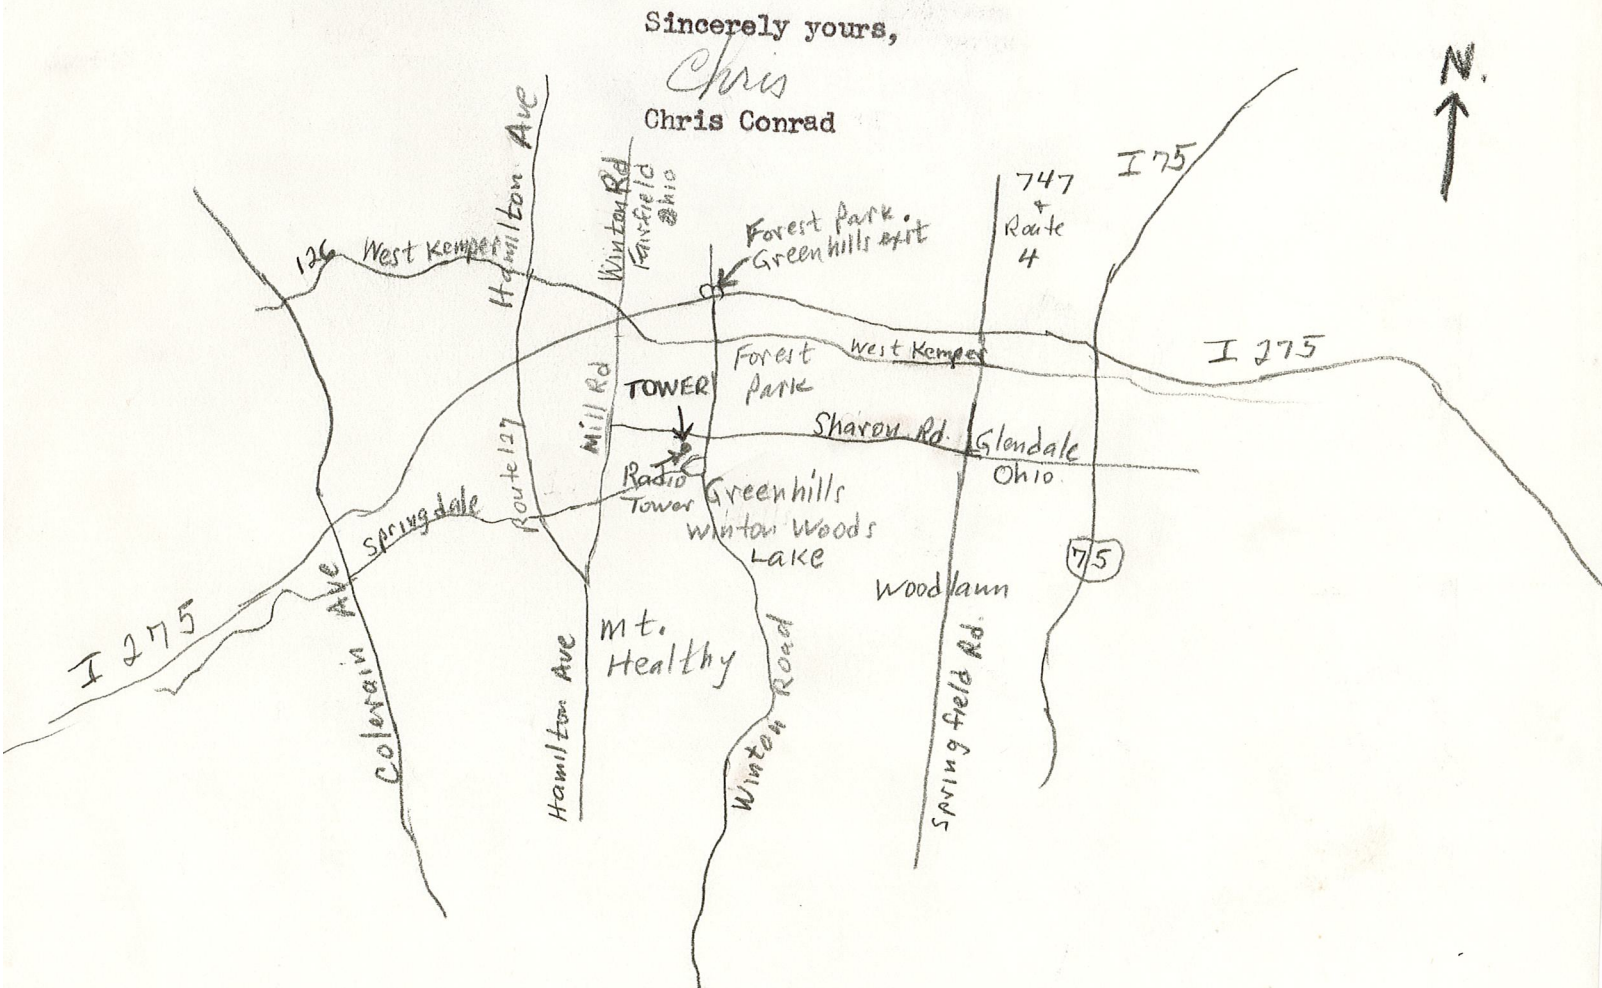 Sincerely yours,
Chris
Chris Conrad
N.
I 75
747
+
Route
4
Hamilton Ave
Winton Rd
Fairfield
Ohio
Forest Park.
Greenhills exit
126 West Kemper
I 275
West Kemper
Forest
Park
TOWER
Mill Rd
Route 127
Sharon Rd.
Glendale
Ohio
Radio
Tower
Springdale
Greenhills
Winton Woods
Lake
75
Woodlawn
I 275
Colerain Ave
Mt.
Healthy
Hamilton Ave
Winton Road
Springfield Rd.